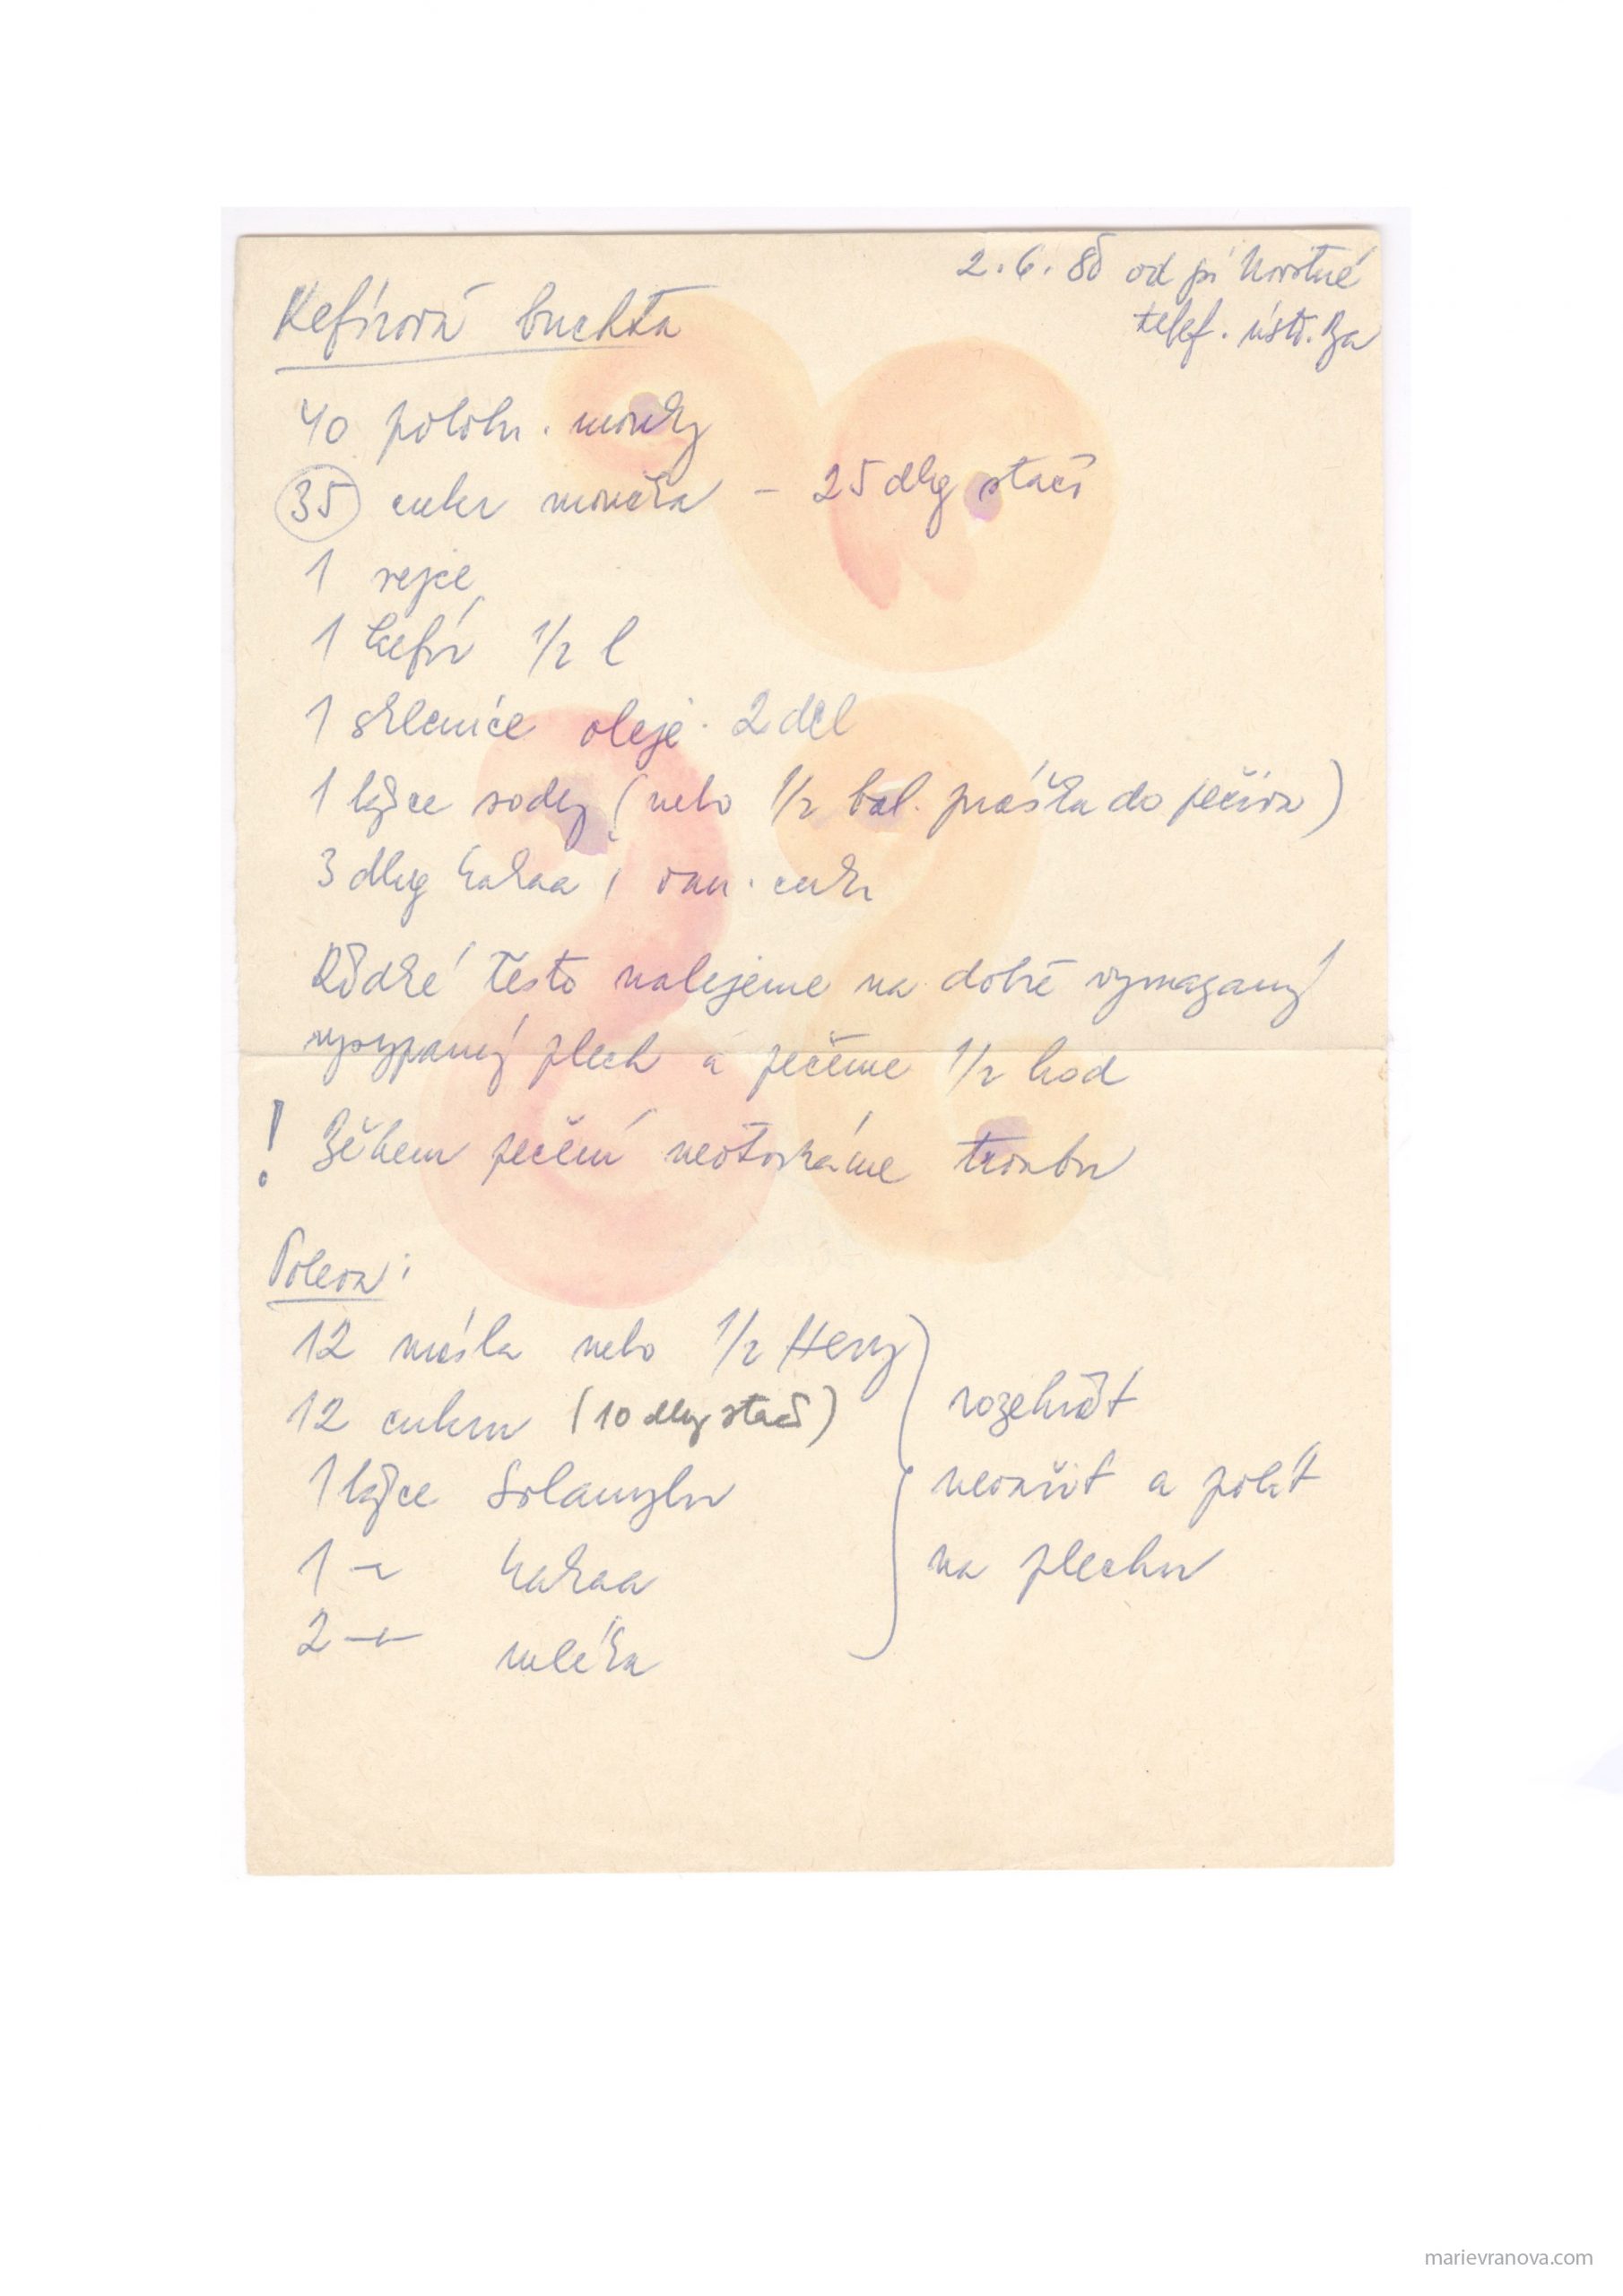 2.6.85 od pí
telef. úst. Ba
Kefírová buchta
40 polohr. mouky
35 cukr moučka – 25 dkg stačí
1 vejce
1 kefír 1/2 l
1 sklenice oleje 2 dcl
1 lžíce sody (nebo 1/2 bal. prášku do pečiva)
3 dkg kakaa, van. cukr
Řídké těsto nalejeme na dobře vymazaný
vysypaný plech a pečeme 1/2 hod
! Během pečení neotvíráme troubu
Poleva:
12 másla nebo 1/2 Hery
12 cukru (10 dkg stačí)
rozehřát
1 lžíce Solamylu
nevařit a polít
1 –"– kakaa
na plechu
2 –"– mléka
marievranova.com